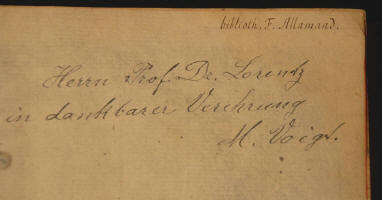 biblioth. F. Allamand.
Herrn Prof. Dr. Lorentz
in dankbarer Verehrung
M. Voigt.